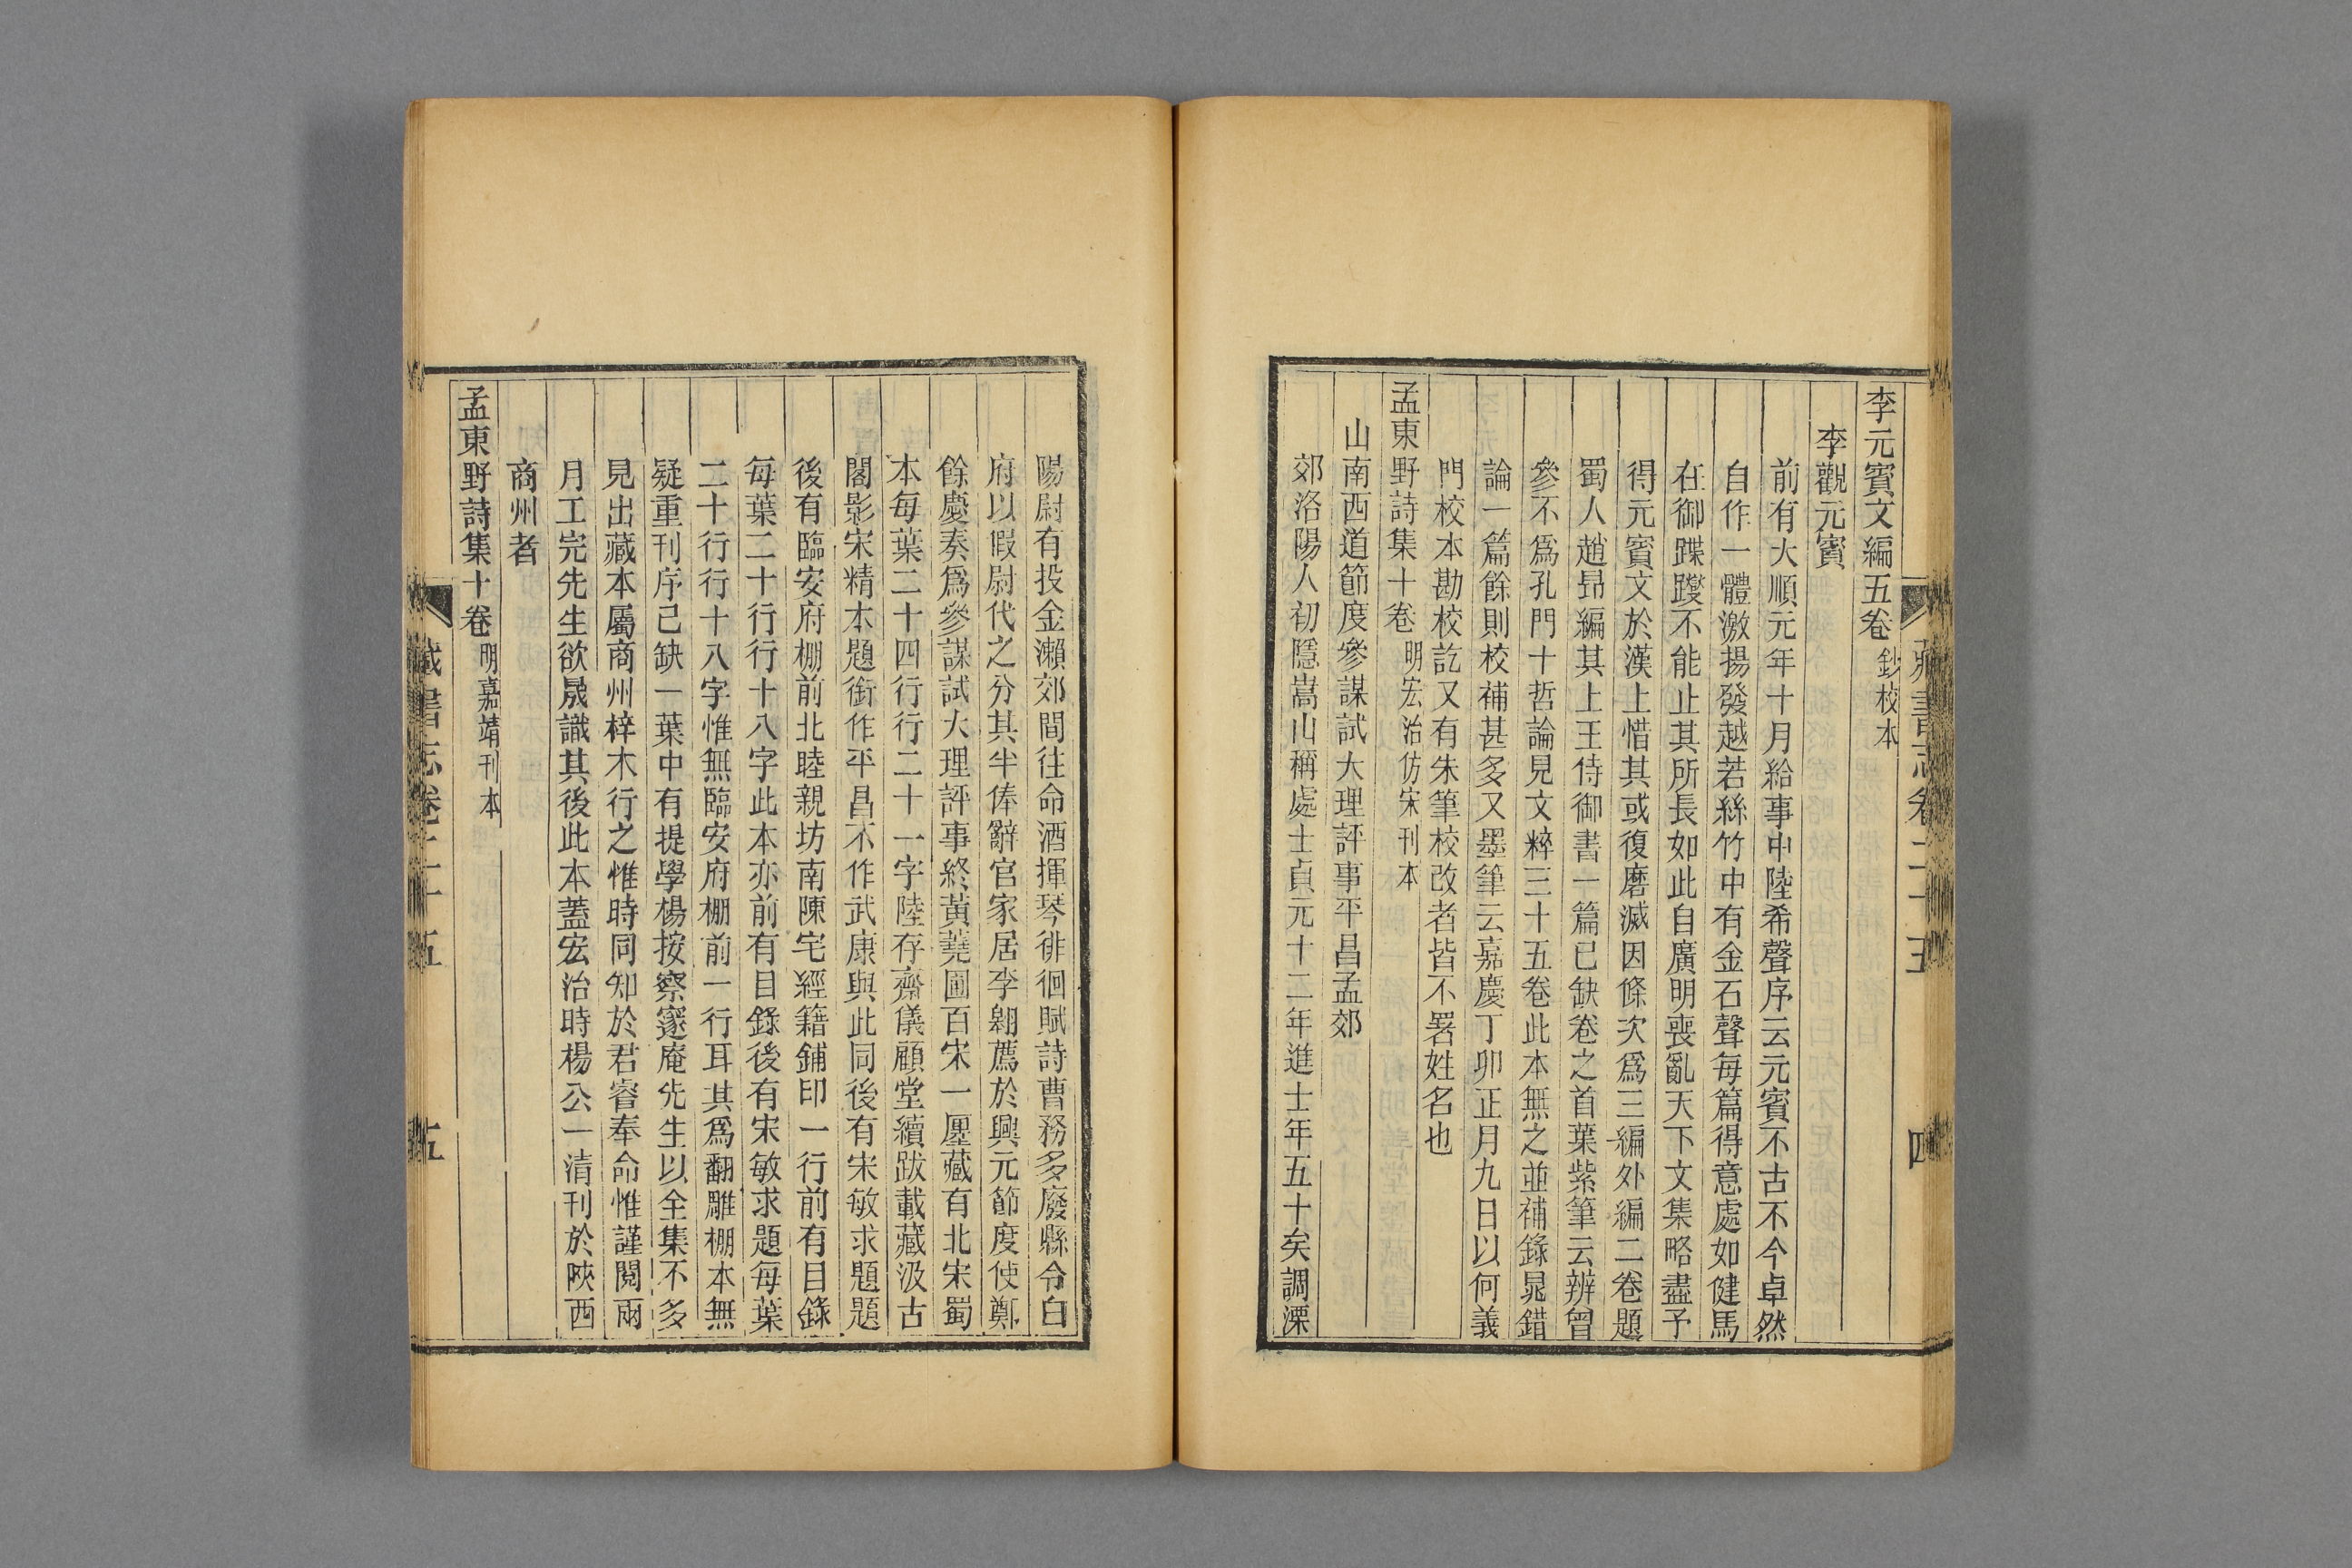 藏書志卷二十五
四
李元賓文編五卷 鈔校本
李觀元賓
前有大順元年十月給事中陸希聲序云元賓不古不今卓然
自作一體激揚發越若絲竹中有金石聲每篇得意處如健馬
在御蹀躞不能止其所長如此自廣明喪亂天下文集略盡予
得元賓文於漢上惜其或復磨滅因條次爲三編外編二卷題
蜀人趙昻編其上王侍御書一篇已缺卷之首葉紫筆云辨曾
參不爲孔門十哲論見文粹三十五卷此本無之並補錄晁錯
論一篇餘則校補甚多又墨筆云嘉慶丁卯正月九日以何義
門校本勘校訖又有朱筆校改者皆不署姓名也
孟東野詩集十卷 明宏治仿宋刊本
山南西道節度參謀試大理評事平昌孟郊
郊洛陽人初隱嵩山稱處士貞元十二年進士年五十矣調溧
陽尉有投金瀨郊間往命酒揮琴徘徊賦詩曹務多廢縣令白
府以假尉代之分其半俸辭官家居李翱薦於興元節度使鄭
餘慶奏爲參謀試大理評事終黃蕘圃百宋一廛藏有北宋蜀
本每葉二十四行行二十一字陸存齋儀顧堂續跋載藏汲古
閣影宋精本題銜作平昌不作武康與此同後有宋敏求題題
後有臨安府棚前北睦親坊南陳宅經籍鋪印一行前有目錄
每葉二十行行十八字此本亦前有目錄後有宋敏求題每葉
二十行行十八字惟無臨安府棚前一行耳其爲翻雕棚本無
疑重刊序已缺一葉中有提學楊按察邃庵先生以全集不多
見出藏本屬商州梓木行之惟時同知於君睿奉命惟謹閱兩
月工完先生欲晟識其後此本蓋宏治時楊公一清刊於陝西
商州者
孟東野詩集十卷 明嘉靖刊本
藏書志卷二十五
五